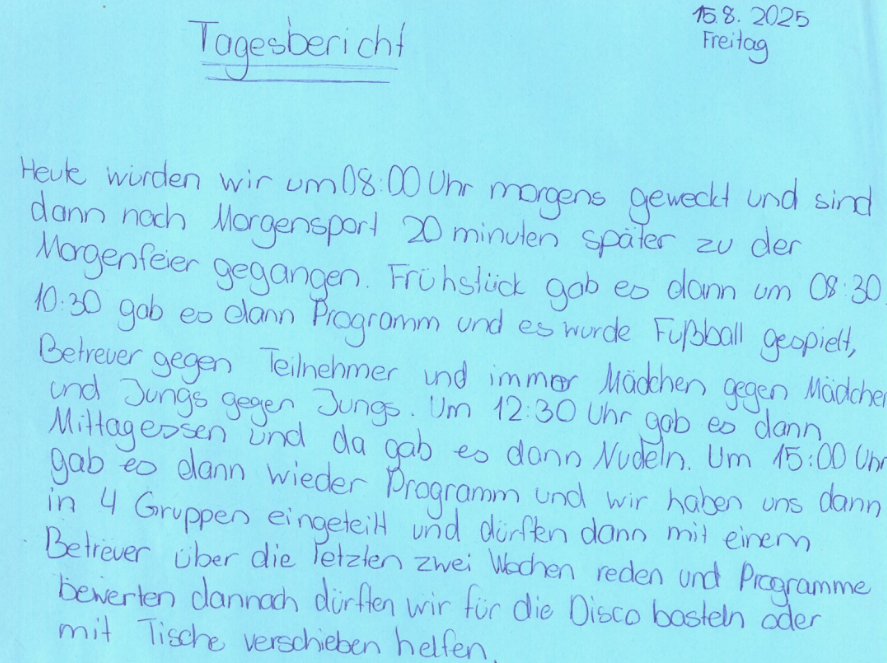 15.8. 2025
Freitag
Tagesbericht
Heute würden wir um 08:00 Uhr morgens geweckt und sind
dann nach Morgensport 20 minuten später zu der
Morgenfeier gegangen. Frühstück gab es dann um 08:30
10:30 gab es dann Programm und es wurde Fußball gespielt,
Betreuer gegen Teilnehmer und immer Mädchen gegen Mädchen
und Jungs gegen Jungs. Um 12:30 Uhr gab es dann
Mittagessen und da gab es dann Nudeln. Um 15:00 Uhr
gab es dann wieder Programm und wir haben uns dann
in 4 Gruppen eingeteilt und dürften dann mit einem
Betreuer über die letzten zwei Wochen reden und Programme
bewerten dannach dürften wir für die Disco basteln oder
mit Tische verschieben helfen.